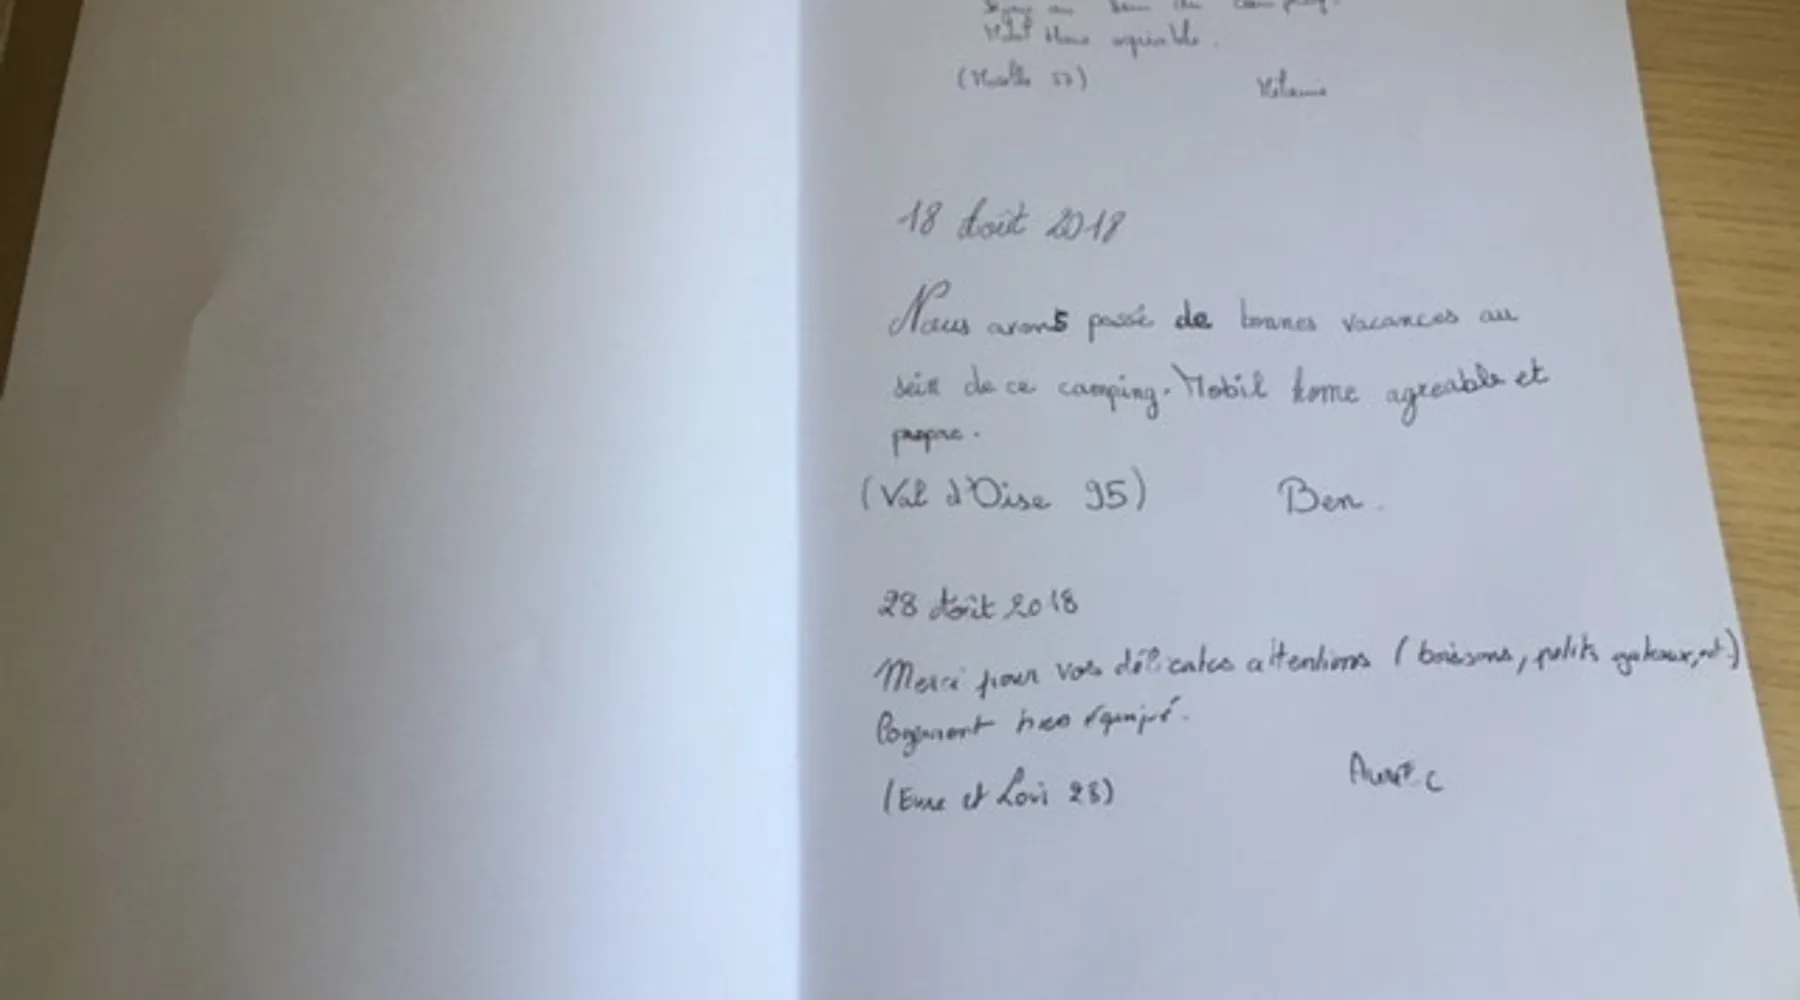 au sein du camping.
agréable.
(Moselle 57) Mélanie
18 Août 2018
Nous avons passé de bonnes vacances au
sein de ce camping. Mobil home agreable et
propre.
(Val d'Oise 95) Ben.
28 Août 2018
Merci pour vos délicates attentions (boissons, petits gateaux, ect.)
Logement bien équipé.
(Eure et Loir 28) C